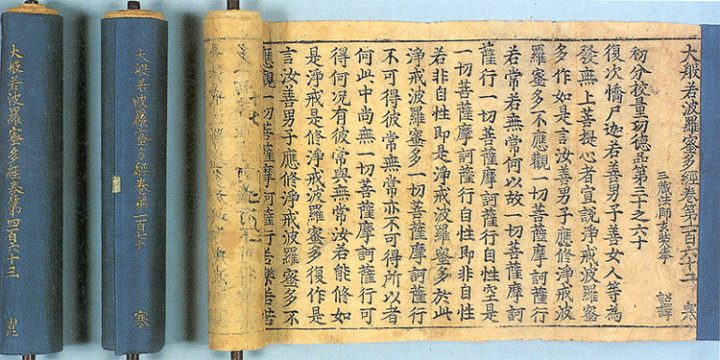 大般若波羅蜜多經卷第一百六十二 寒
初分校量功德品第三十之六十
三藏法師玄奘奉 詔譯
復次憍尸迦若善男子善女人等為
發無上菩提心者宣說淨戒波羅蜜
多作如是言汝善男子應修淨戒波
羅蜜多不應觀一切菩薩摩訶薩行
若常若無常何以故一切菩薩摩訶
薩行一切菩薩摩訶薩行自性空是
一切菩薩摩訶薩行自性即非自性
若非自性即是淨戒波羅蜜多於此
淨戒波羅蜜多一切菩薩摩訶薩行
不可得彼常無常亦不可得所以者
何此中尚無一切菩薩摩訶薩行可
得何況有彼常與無常汝若能修如
是淨戒是修淨戒波羅蜜多復作是
言汝善男子應修淨戒波羅蜜多不
應觀一切菩薩摩訶薩行若樂若苦
大般若波羅蜜多經卷第一百 寒
大般若波羅蜜多經卷第四百六十三 崑